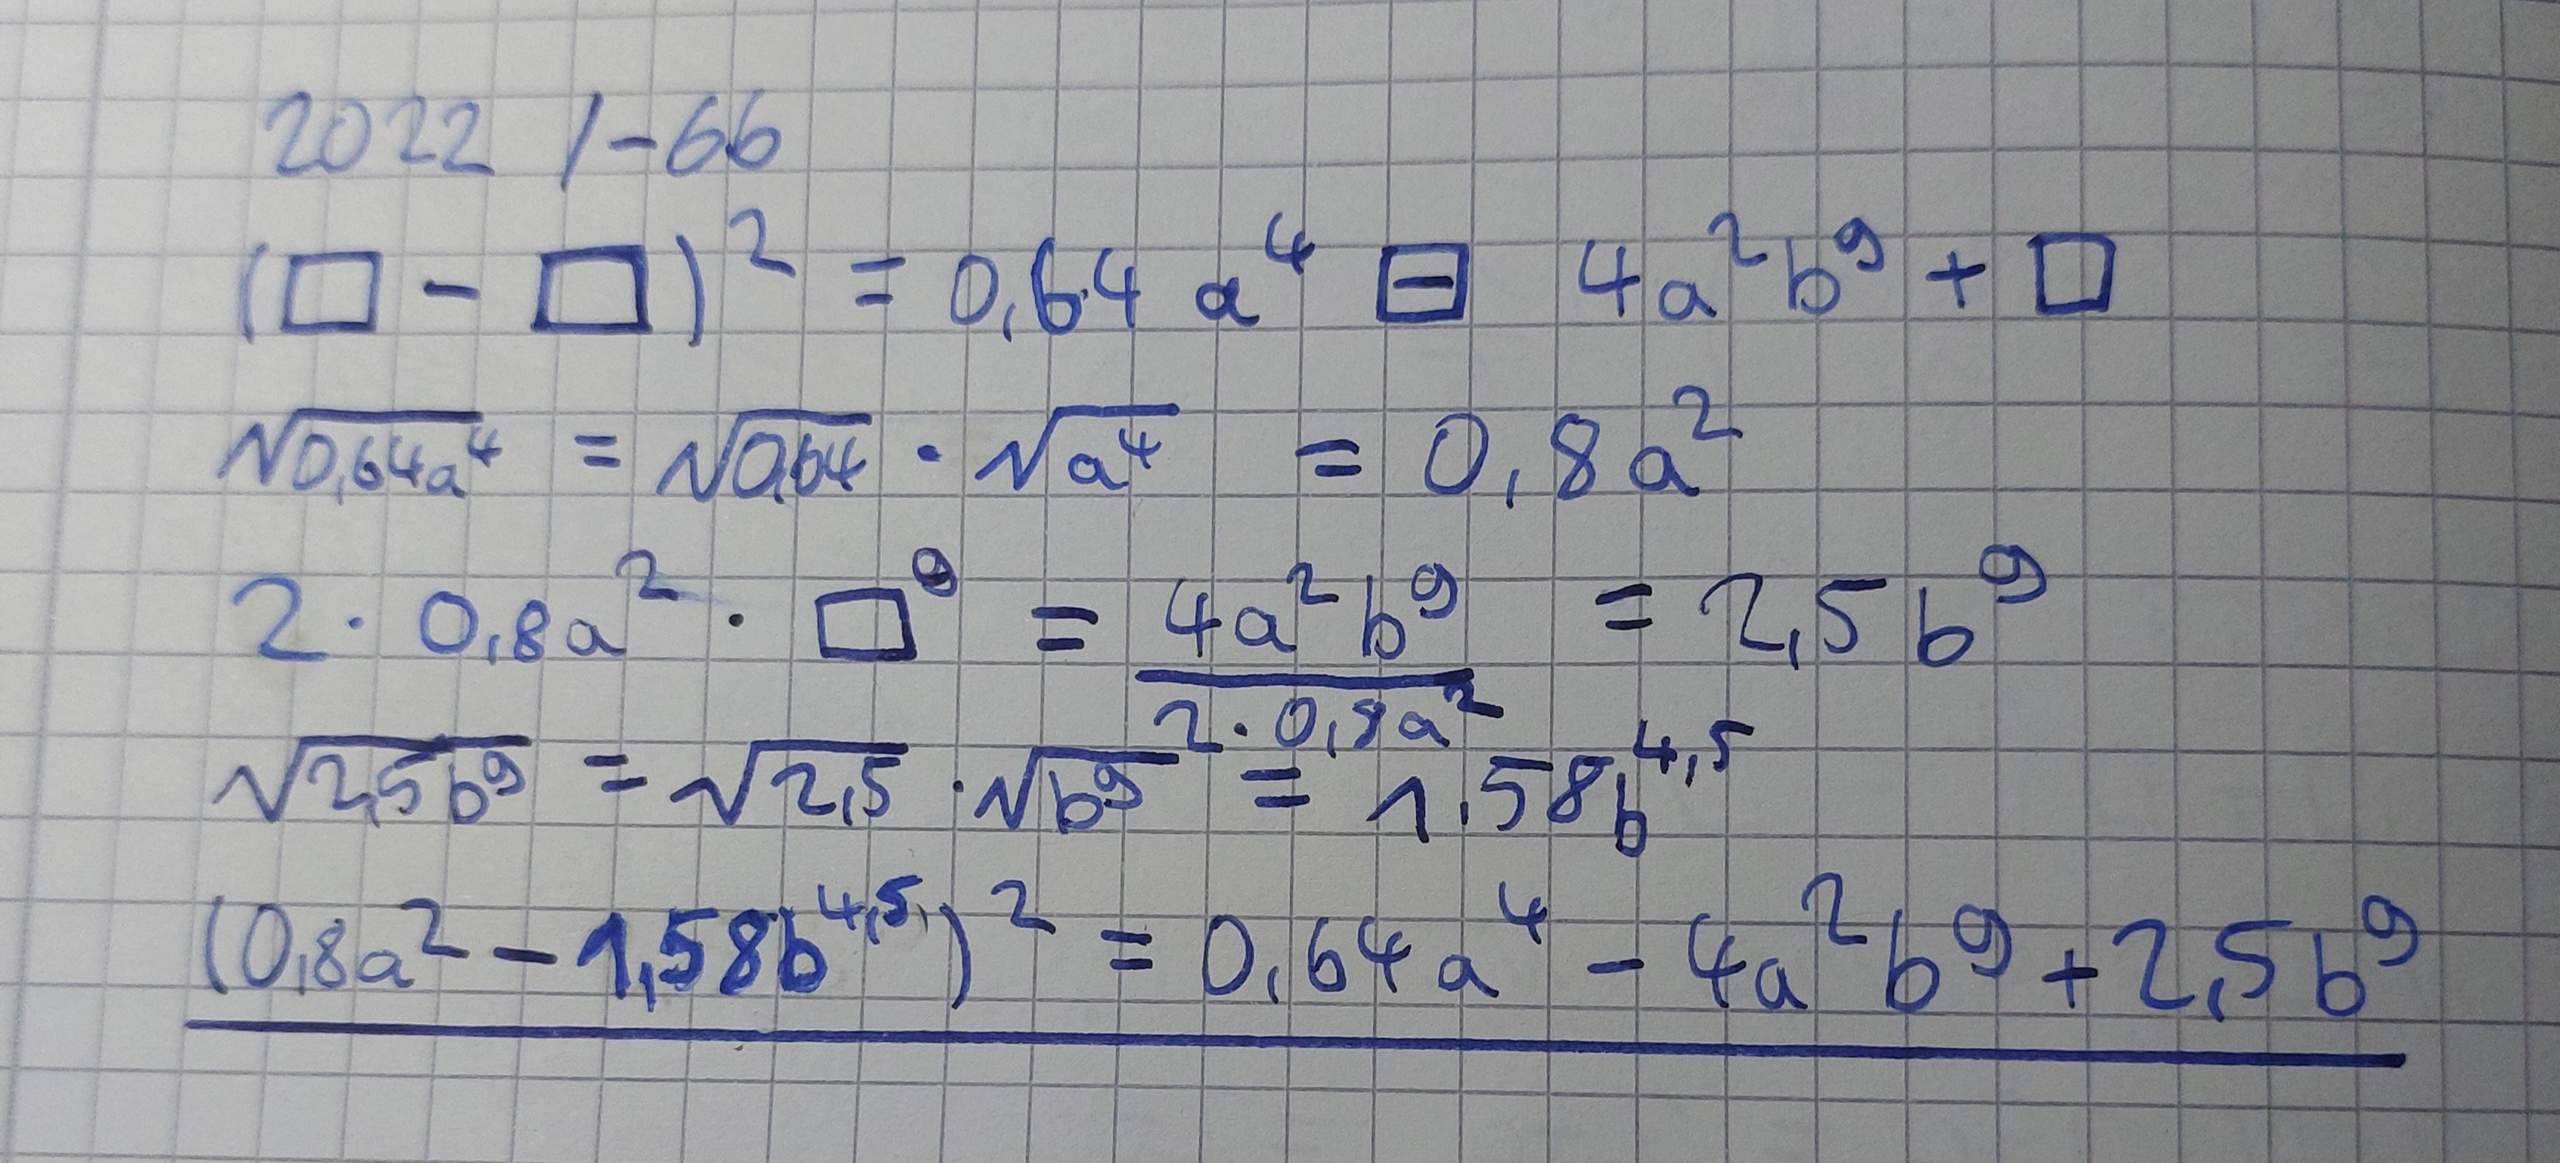 2022 /-66
(□ - □)² = 0,64 a⁴ ⊟ 4a²b⁹ + □
√0,64a⁴ = √0,64 · √a⁴ = 0,8a²
2 · 0,8a² · □⁹ = 4a²b⁹ / 2 · 0,8a² = 2,5b⁹
√2,5b⁹ = √2,5 · √b⁹ = 1,58b⁴,⁵
(0,8a² - 1,58b⁴,⁵)² = 0,64a⁴ - 4a²b⁹ + 2,5b⁹